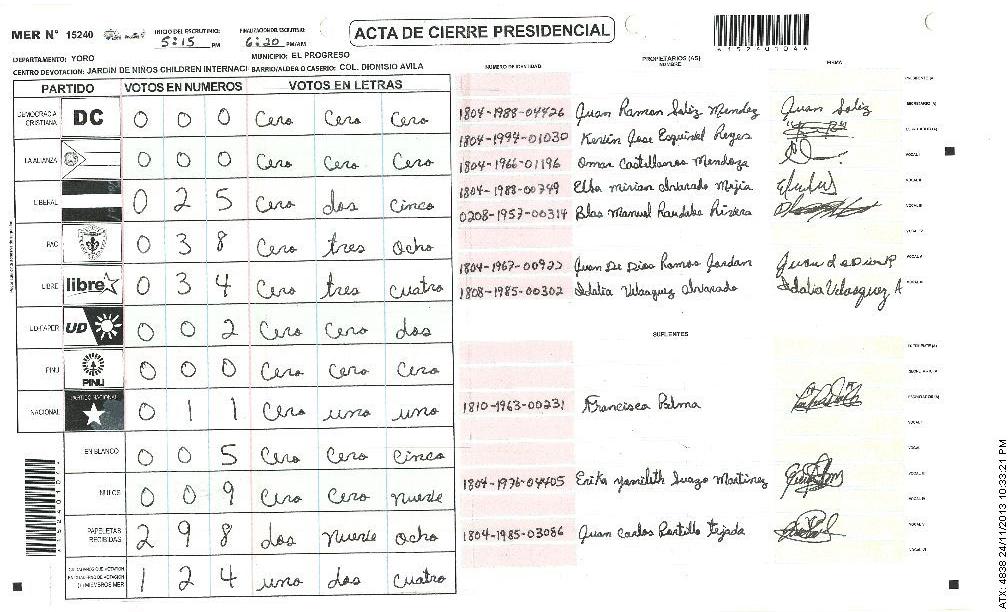 MER N° 15240
INICIO DEL ESCRUTINIO: 5:15 PM
FINALIZACION DEL ESCRUTINIO: 6:20 PM/AM
ACTA DE CIERRE PRESIDENCIAL
DEPARTAMENTO: YORO MUNICIPIO: EL PROGRESO
CENTRO DE VOTACION: JARDIN DE NIÑOS CHILDREN INTERNACI BARRIO/ALDEA O CASERIO: COL. DIONISIO AVILA
PARTIDO VOTOS EN NUMEROS VOTOS EN LETRAS
DEMOCRACIA CRISTIANA DC 0 0 0 Cero Cero Cero
LA ALIANZA 0 0 0 Cero Cero Cero
LIBERAL 0 2 5 Cero dos cinco
PAC 0 3 8 Cero tres ocho
LIBRE libre 0 3 4 Cero tres cuatro
UD FAPER UD 0 0 2 Cero Cero dos
PINU PINU 0 0 0 Cero Cero Cero
NACIONAL PARTIDO NACIONAL 0 1 1 Cero uno uno
EN BLANCO 0 0 5 Cero Cero Cinco
NULOS 0 0 9 Cero Cero nueve
PAPELETAS RECIBIDAS 2 9 8 dos nueve ocho
1 2 4 uno dos cuatro
NUMERO DE IDENTIDAD PROPIETARIOS (AS) NOMBRE FIRMA
1804-1988-04426 Juan Ramon Soliz Mendez Juan Soliz
1804-1994-01030 Kevin Jose Esquivel Reyes
1804-1966-01196 Omar Castellanos Mendoza
1804-1988-00749 Elba mirian alvarado Mejia
0208-1957-00314 Blas Manuel Rivera
1804-1967-00922 Juan De Dios Ramos Jordan
1808-1985-00302 Idalia Velasquez alvarado Idalia Velasquez A
SUPLENTES
1810-1963-00231 Francisca Palma
1804-1976-04405 Erika Yamileth Suazo Martinez
1804-1985-03086 Juan Carlos Portillo tejada
ATX: 4838 24/11/2013 10:33:21 PM